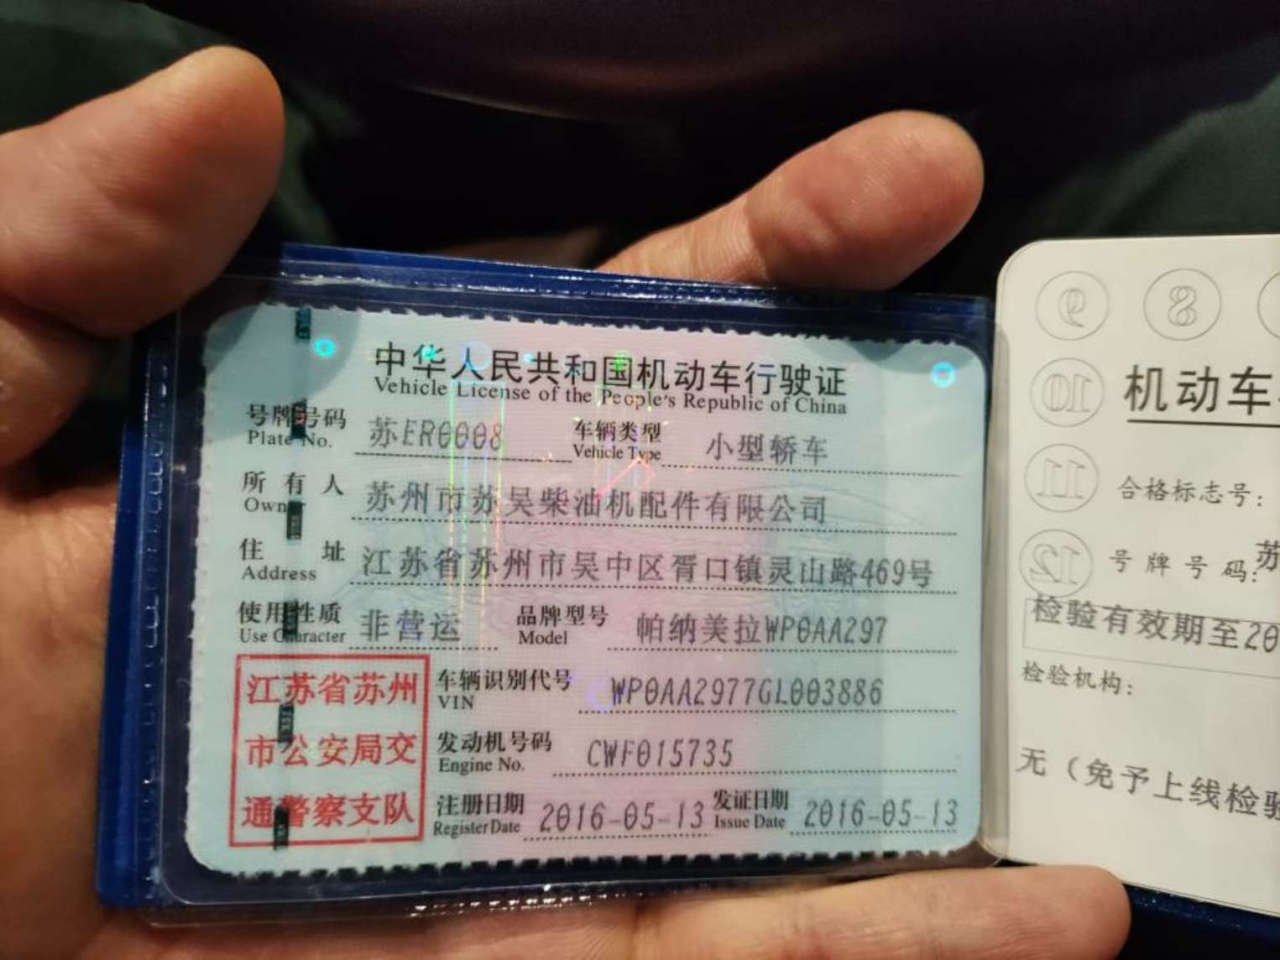 中华人民共和国机动车行驶证
Vehicle License of the People's Republic of China
号牌号码 苏ER0008 车辆类型 小型轿车
Plate No. Vehicle Type
所有人 苏州市苏吴柴油机配件有限公司
Owner
住址 江苏省苏州市吴中区胥口镇灵山路469号
Address
使用性质 非营运 品牌型号 帕纳美拉WP0AA297
Use Character Model
江苏省苏州
市公安局交
通警察支队
车辆识别代号 WP0AA2977GL003886
VIN
发动机号码 CWF015735
Engine No.
注册日期 2016-05-13 发证日期 2016-05-13
Register Date Issue Date
9 8
10
11
12
机动车
合格标志号:
号牌号码:苏
检验有效期至20
检验机构:
无（免予上线检验